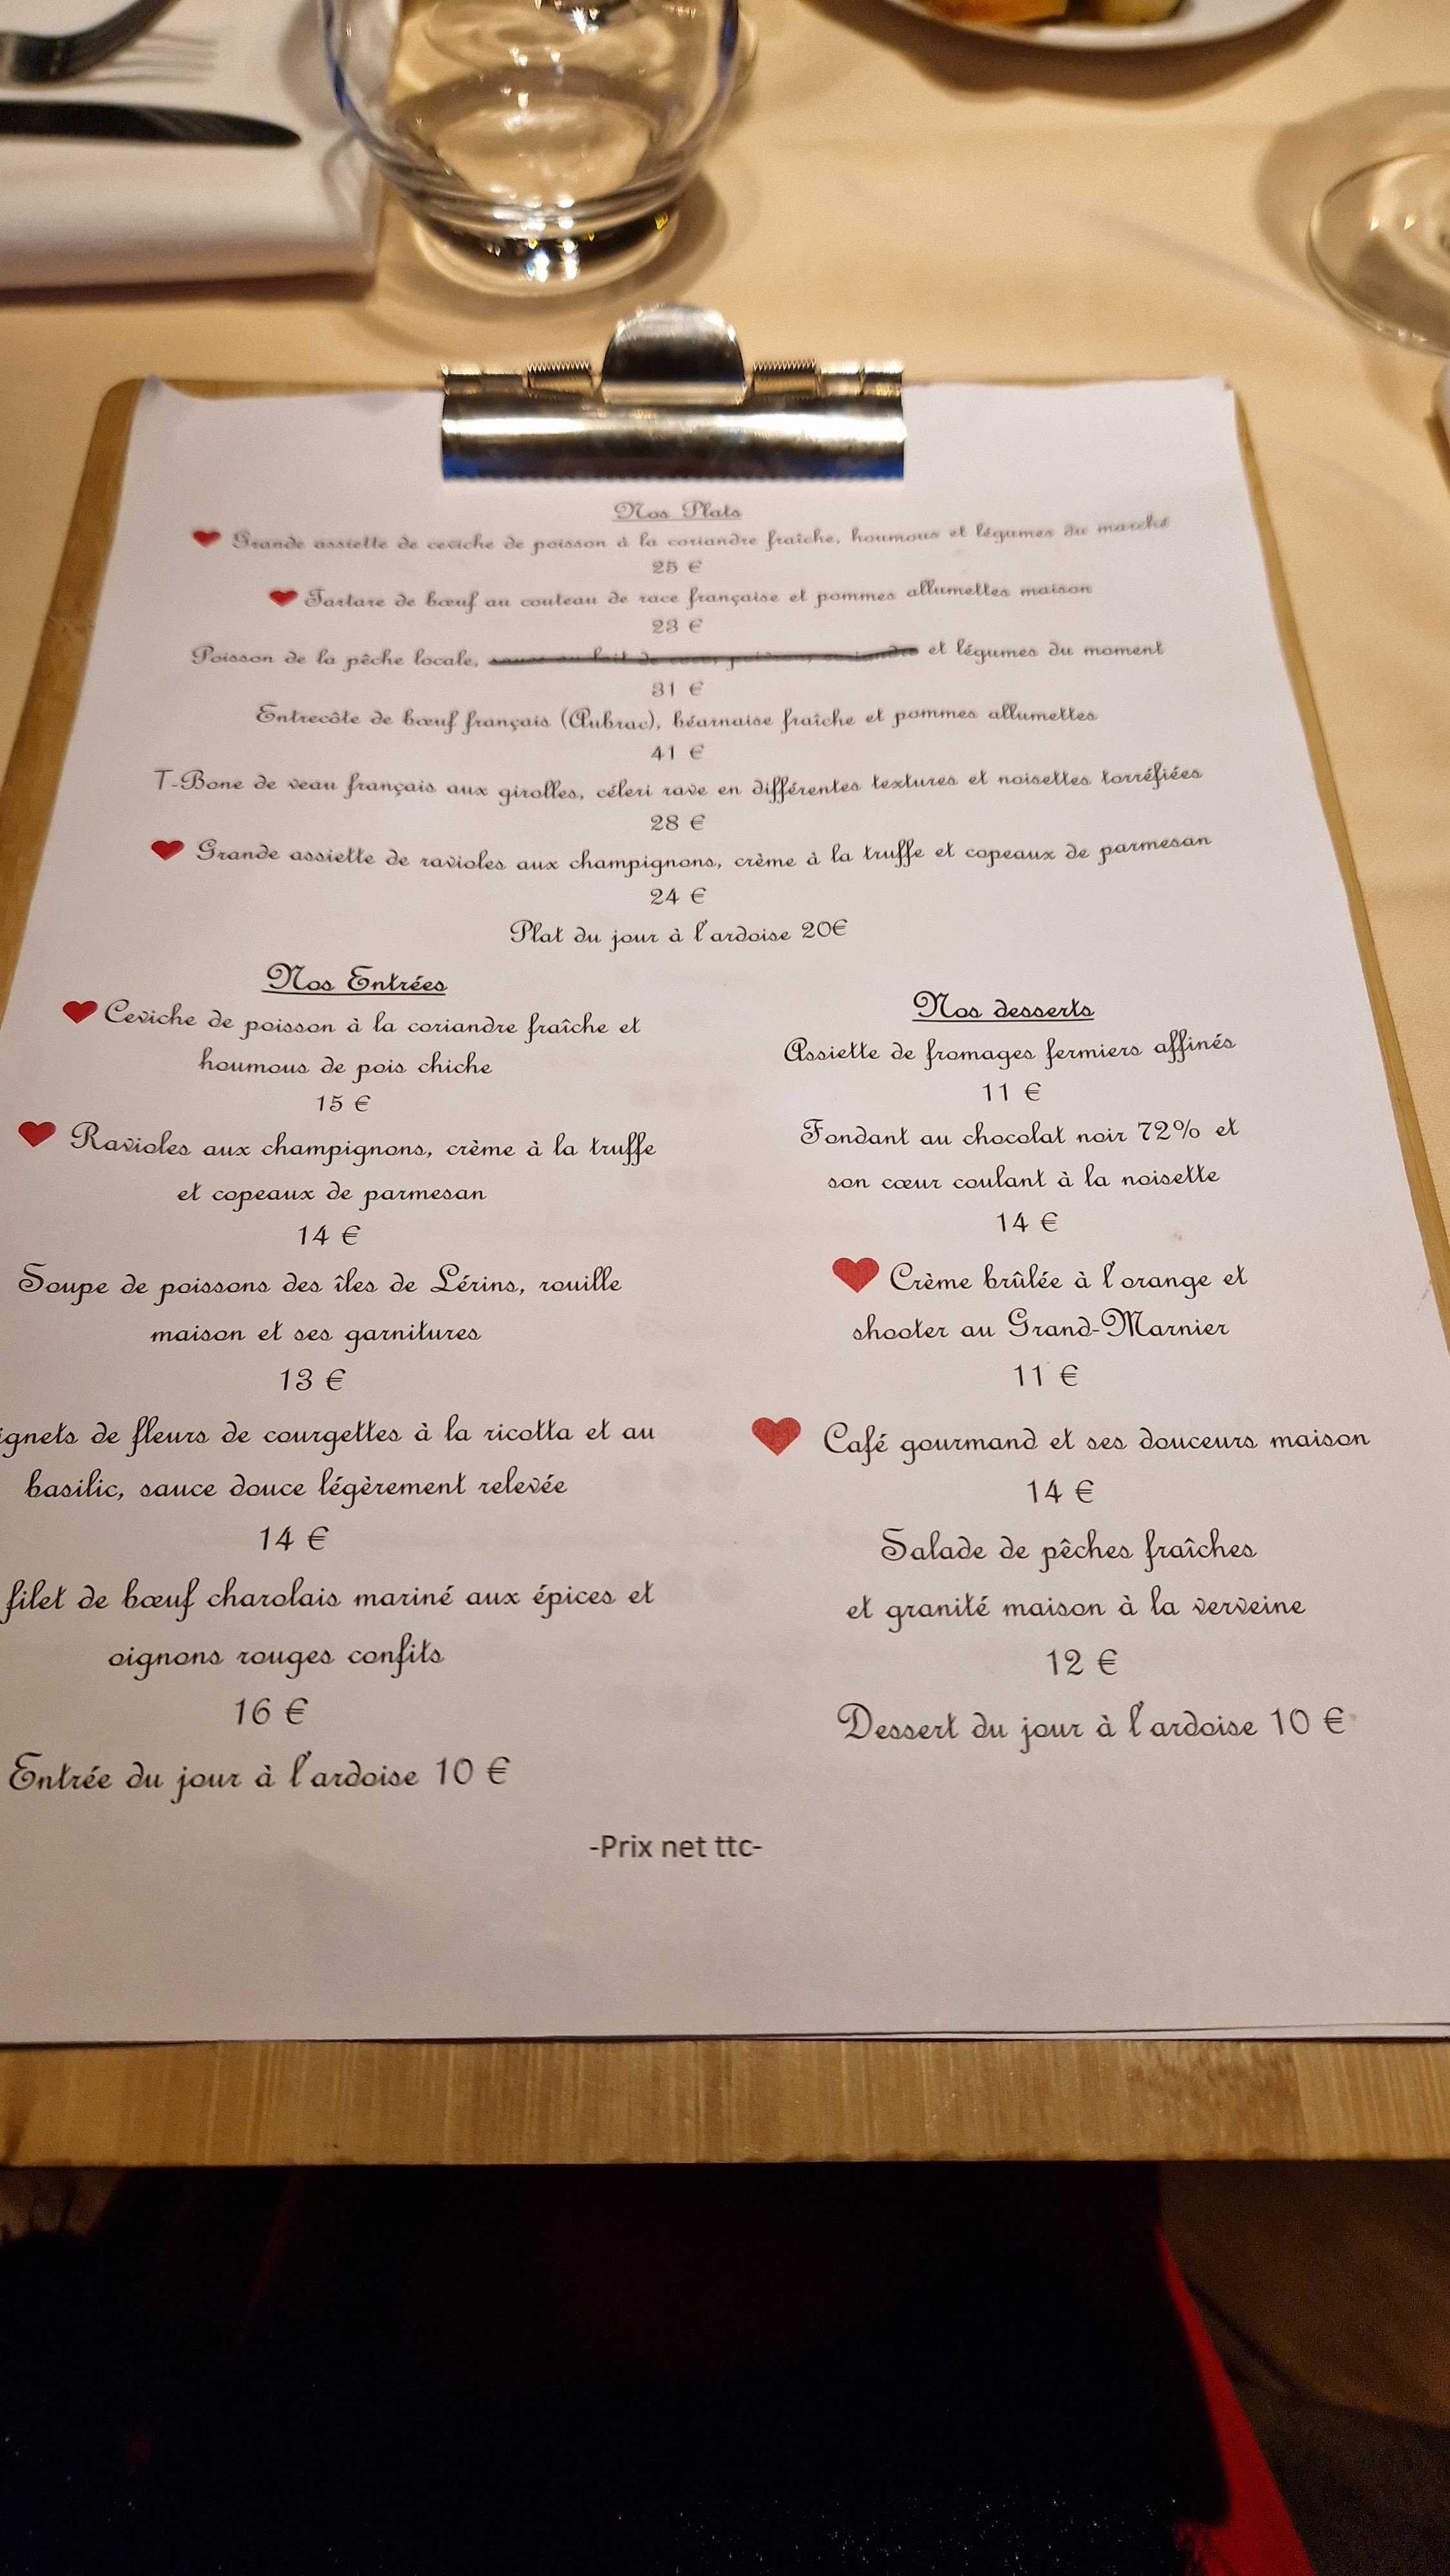 Nos Plats
Grande assiette de ceviche de poisson à la coriandre fraîche, houmous et légumes du marché
25 €
Tartare de bœuf au couteau de race française et pommes allumettes maison
23 €
Poisson de la pêche locale, sauce au lait de coco, et légumes du moment
31 €
Entrecôte de bœuf français (Aubrac), béarnaise fraîche et pommes allumettes
41 €
T-Bone de veau français aux girolles, céleri rave en différentes textures et noisettes torréfiées
28 €
Grande assiette de ravioles aux champignons, crème à la truffe et copeaux de parmesan
24 €
Plat du jour à l'ardoise 20€
Nos Entrées
Ceviche de poisson à la coriandre fraîche et
houmous de pois chiche
15 €
Ravioles aux champignons, crème à la truffe
et copeaux de parmesan
14 €
Soupe de poissons des îles de Lérins, rouille
maison et ses garnitures
13 €
ignets de fleurs de courgettes à la ricotta et au
basilic, sauce douce légèrement relevée
14 €
filet de bœuf charolais mariné aux épices et
oignons rouges confits
16 €
Entrée du jour à l'ardoise 10 €
Nos desserts
Assiette de fromages fermiers affinés
11 €
Fondant au chocolat noir 72% et
son cœur coulant à la noisette
14 €
Crème brûlée à l'orange et
shooter au Grand-Marnier
11 €
Café gourmand et ses douceurs maison
14 €
Salade de pêches fraîches
et granité maison à la verveine
12 €
Dessert du jour à l'ardoise 10 €
-Prix net ttc-